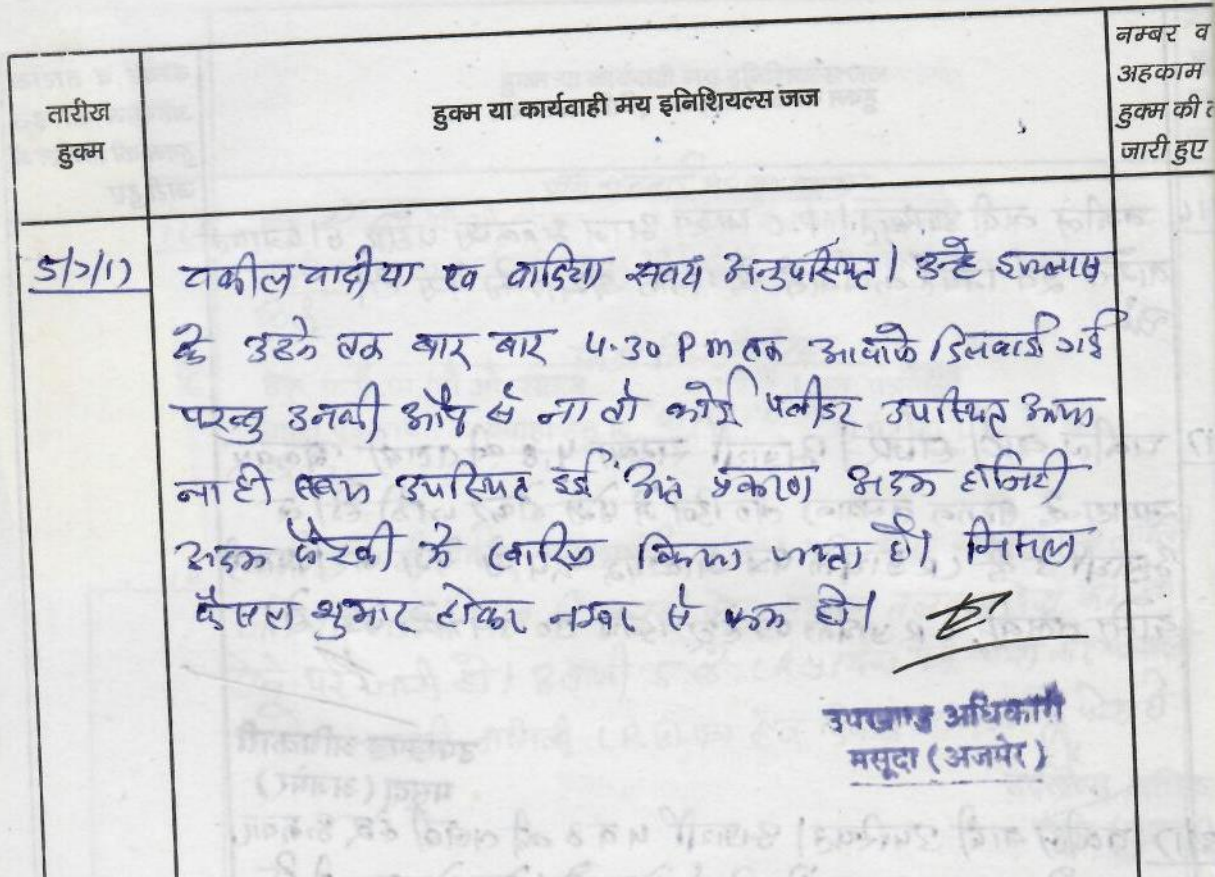 तारीख
हुक्म
हुक्म या कार्यवाही मय इनिशियल्स जज
नम्बर व
अहकाम
हुक्म की त
जारी हुए
वकील वादीया एव वादिया स्वयं अनुपस्थित। उन्हे इजलास
के उठने तक बार बार 4.30 Pm तक आवाजे दिलवाई गई
परन्तु उनकी और से ना तो कोई पलीडर उपस्थित आया
ना ही स्वयं उपस्थित हुई अतः प्रकरण अदम हाजिरी
अदम पैरवी मे खारिज किया जाता है। मिसल
फैसल शुमार होकर नम्बर से कम हो।
उपखण्ड अधिकारी
मसूदा (अजमेर)